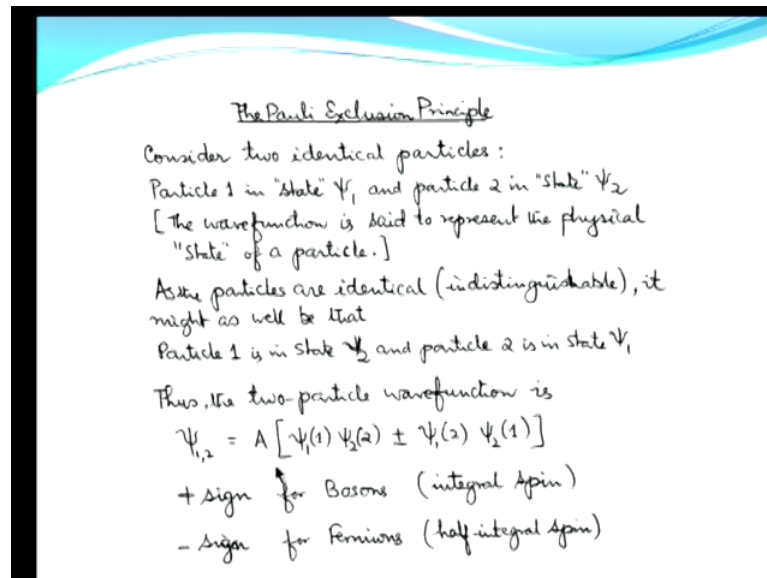 The Pauli Exclusion Principle
Consider two identical particles :
Particle 1 in "state" Ψ₁ and particle 2 in "state" Ψ₂
[The wavefunction is said to represent the physical
"state" of a particle.]
As the particles are identical (indistinguishable), it
might as well be that
Particle 1 is in state Ψ₂ and particle 2 is in state Ψ₁
Thus, the two-particle wavefunction is
Ψ₁,₂ = A [Ψ₁(1) Ψ₂(2) ± Ψ₁(2) Ψ₂(1)]
+ sign for Bosons (integral spin)
- sign for Fermions (half-integral spin)